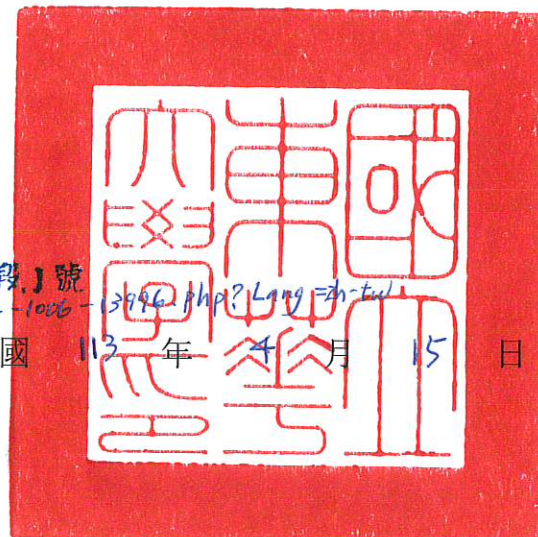 國立
東華
大學印
段.1號
-1006-13996.php?Lang=zh-tw
國 113 年 4 月 15 日